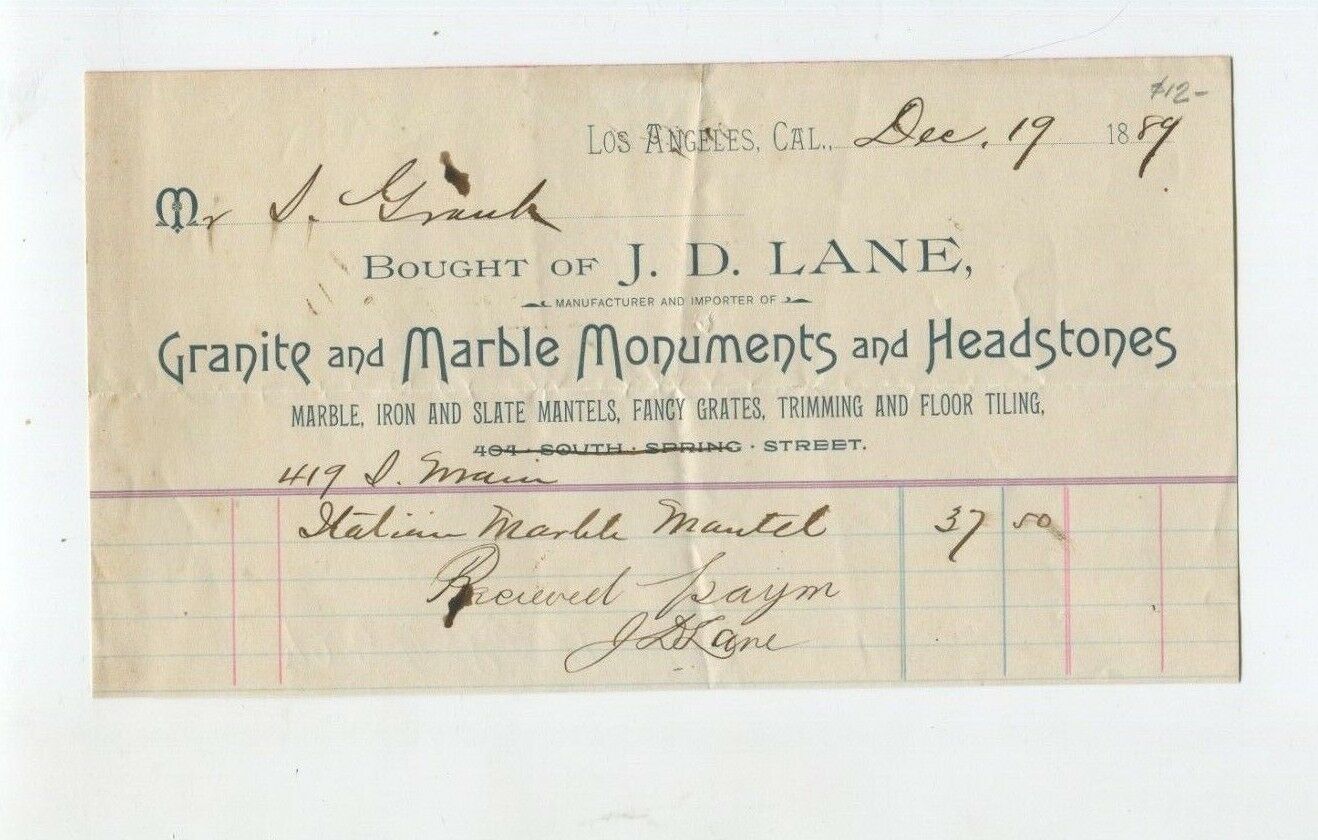 $12-
LOS ANGELES, CAL., Dec. 19 1889
Mr S.
BOUGHT OF J. D. LANE,
MANUFACTURER AND IMPORTER OF
Granite and Marble Monuments and Headstones
MARBLE, IRON AND SLATE MANTELS, FANCY GRATES, TRIMMING AND FLOOR TILING,
404 · SOUTH · SPRING · STREET.
419 S. Main
Italian Marble Mantel 37 50
Recieved paym
J D Lane